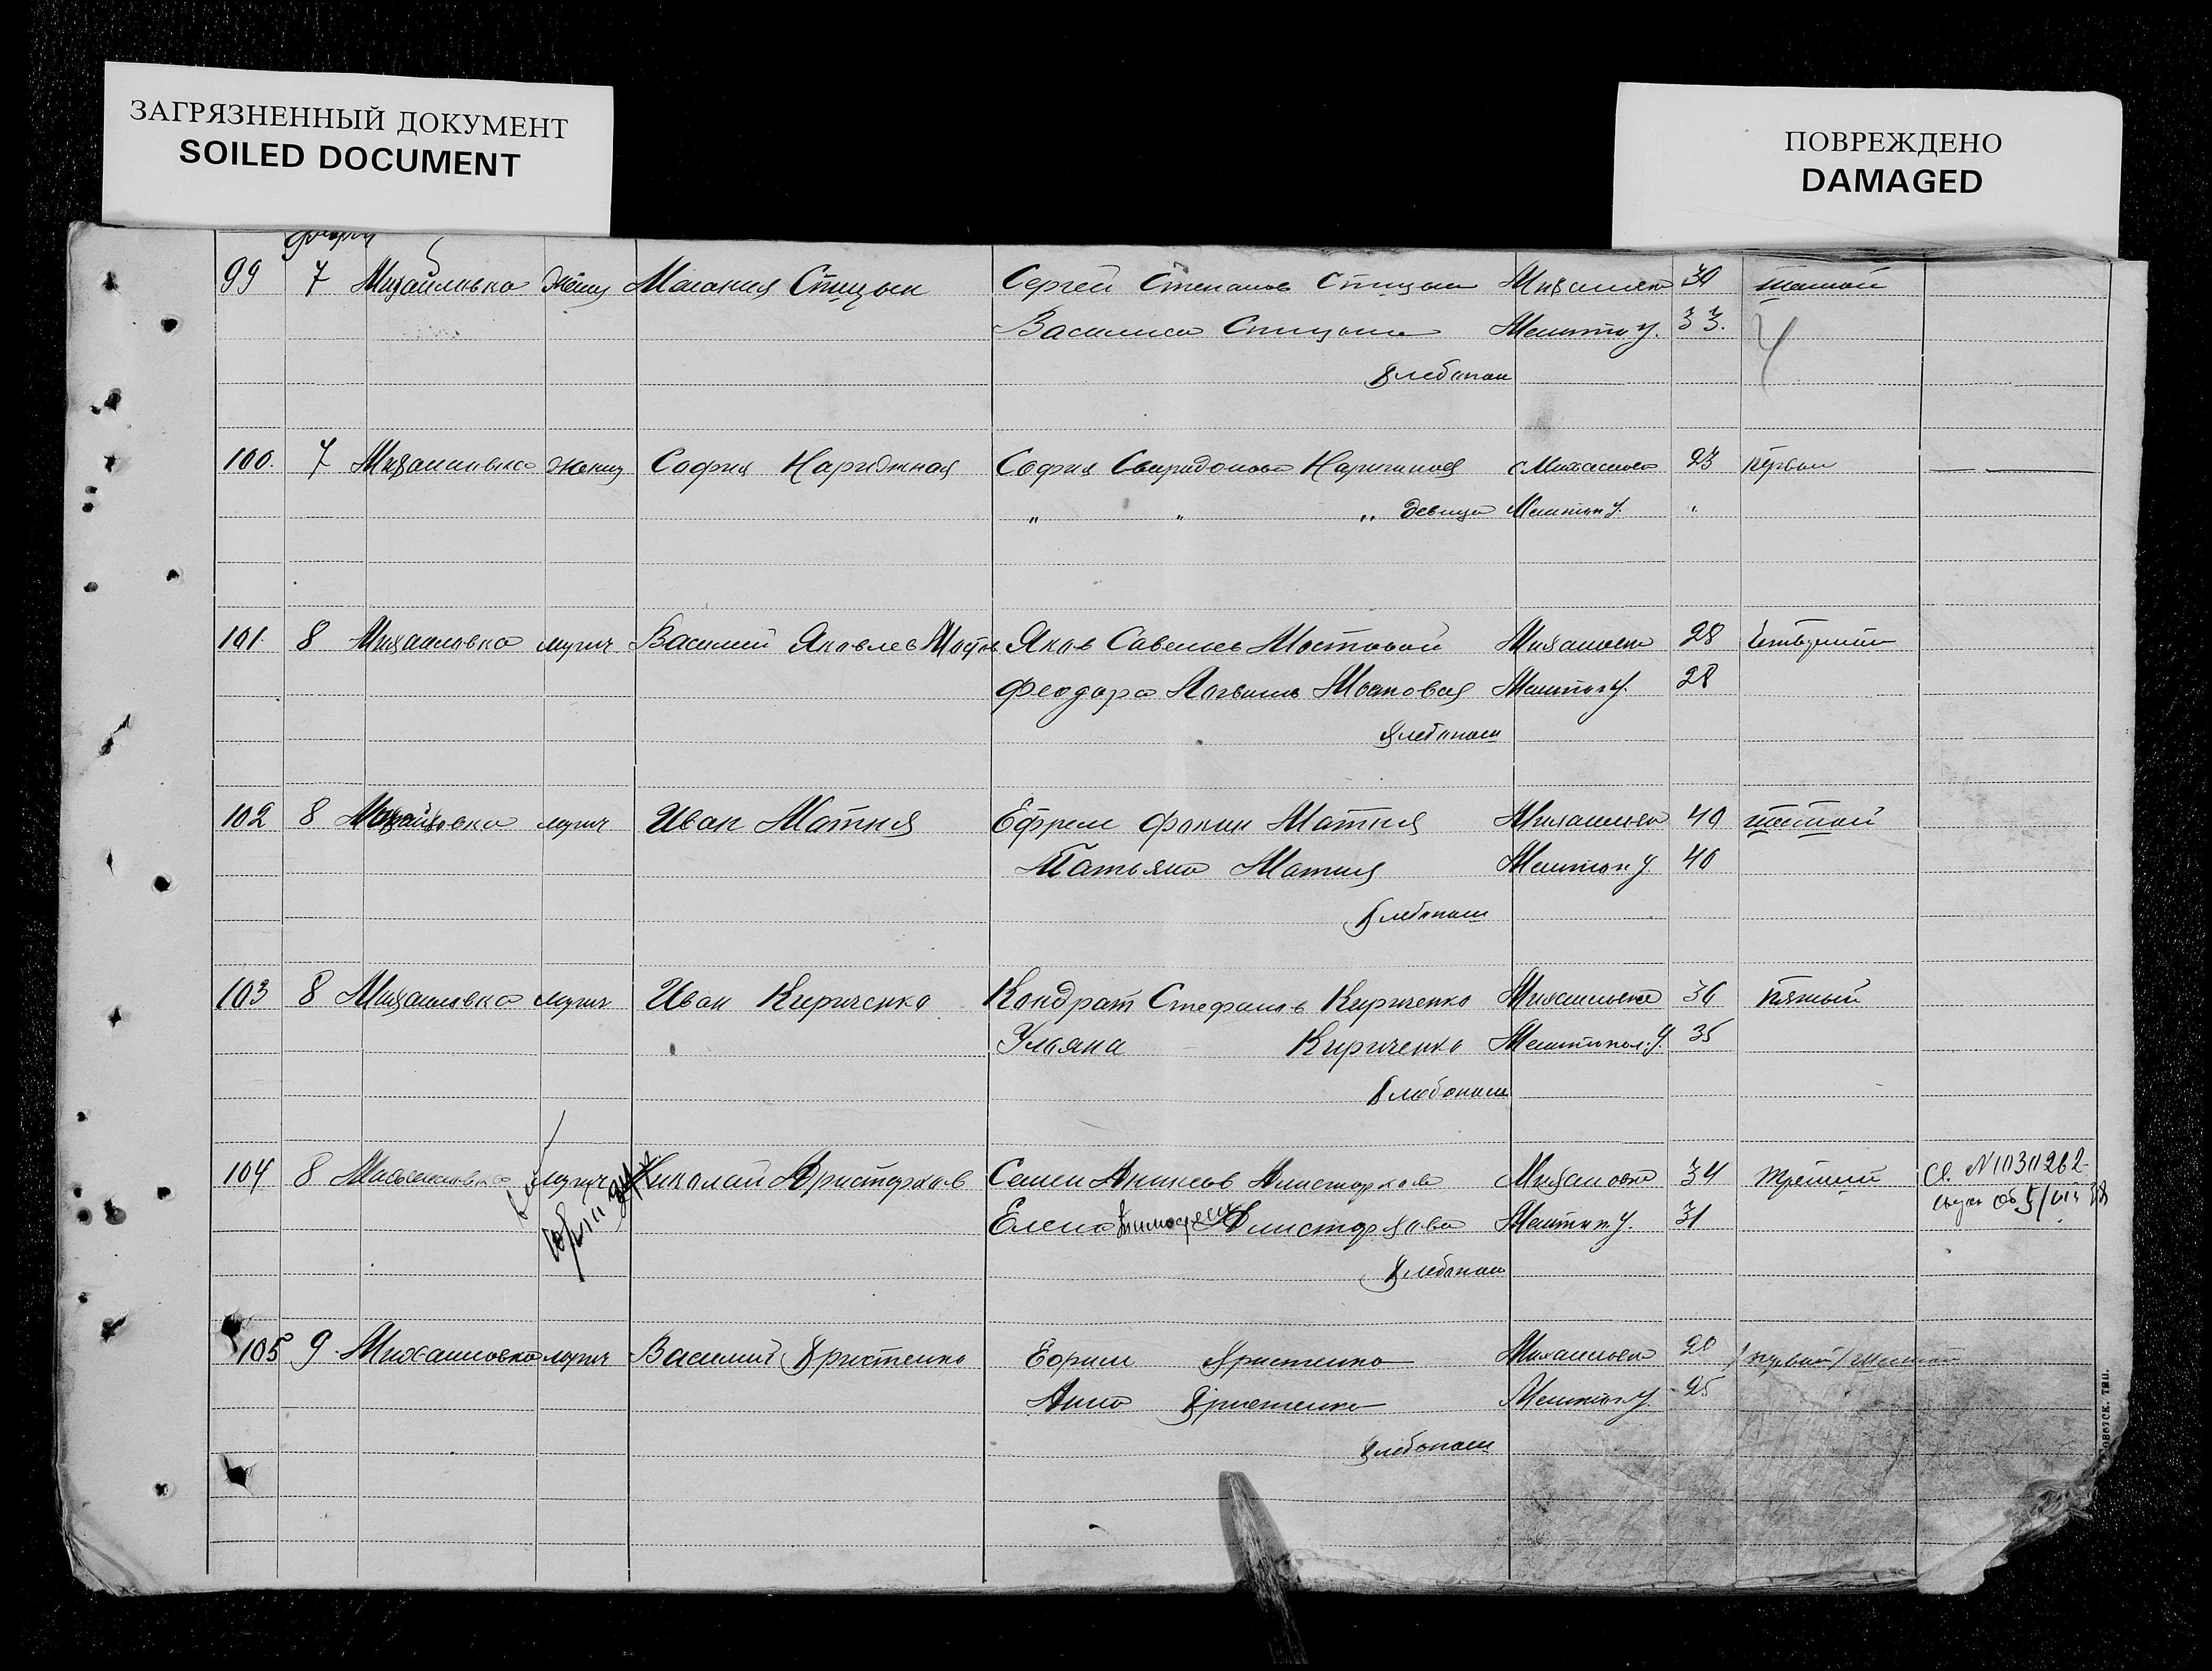 ЗАГРЯЗНЕННЫЙ ДОКУМЕНТ
SOILED DOCUMENT
ПОВРЕЖДЕНО
DAMAGED
99 7 Михайловка женц Спицын Сергей Степанов Спицын Михайловка 30 шестой
Василиса Спицына Мелитоп У. 33.
Хлебопаш
4
100. 7 Михайловка женц София Нарижная София Свиридонова Нарижная Михайловка 23 первый
" " " девица Мелитоп У. "
101. 8 Михайловка мужч Василий Яковлев Яков Савельев Мостовой Михайловка 28
Феодора Мостовая Мелитоп У. 28
Хлебопаш
102 8 Михайловка мужч Иван Матня Ефрем Фокин Матня Михайловка 40 шестой
Татьяна Матня Мелитоп У. 40
Хлебопаш
103 8 Михайловка мужч Иван Кириченко Кондрат Стефанов Кириченко Михайловка 36 пятый
Ульяна Кириченко Мелитопол. У. 35
Хлебопаш
104 8 Михайловка мужч Николай Аристархов Семен Михайловка 34 третий Св. N 1030262
Елена Мелитоп У. 31
Хлебопаш
105 9 Михайловка мужч Василий Христенко Ефрем Христенко Михайловка /первый/ шестой
Анна Христенко Мелитоп У. 25
Хлебопаш